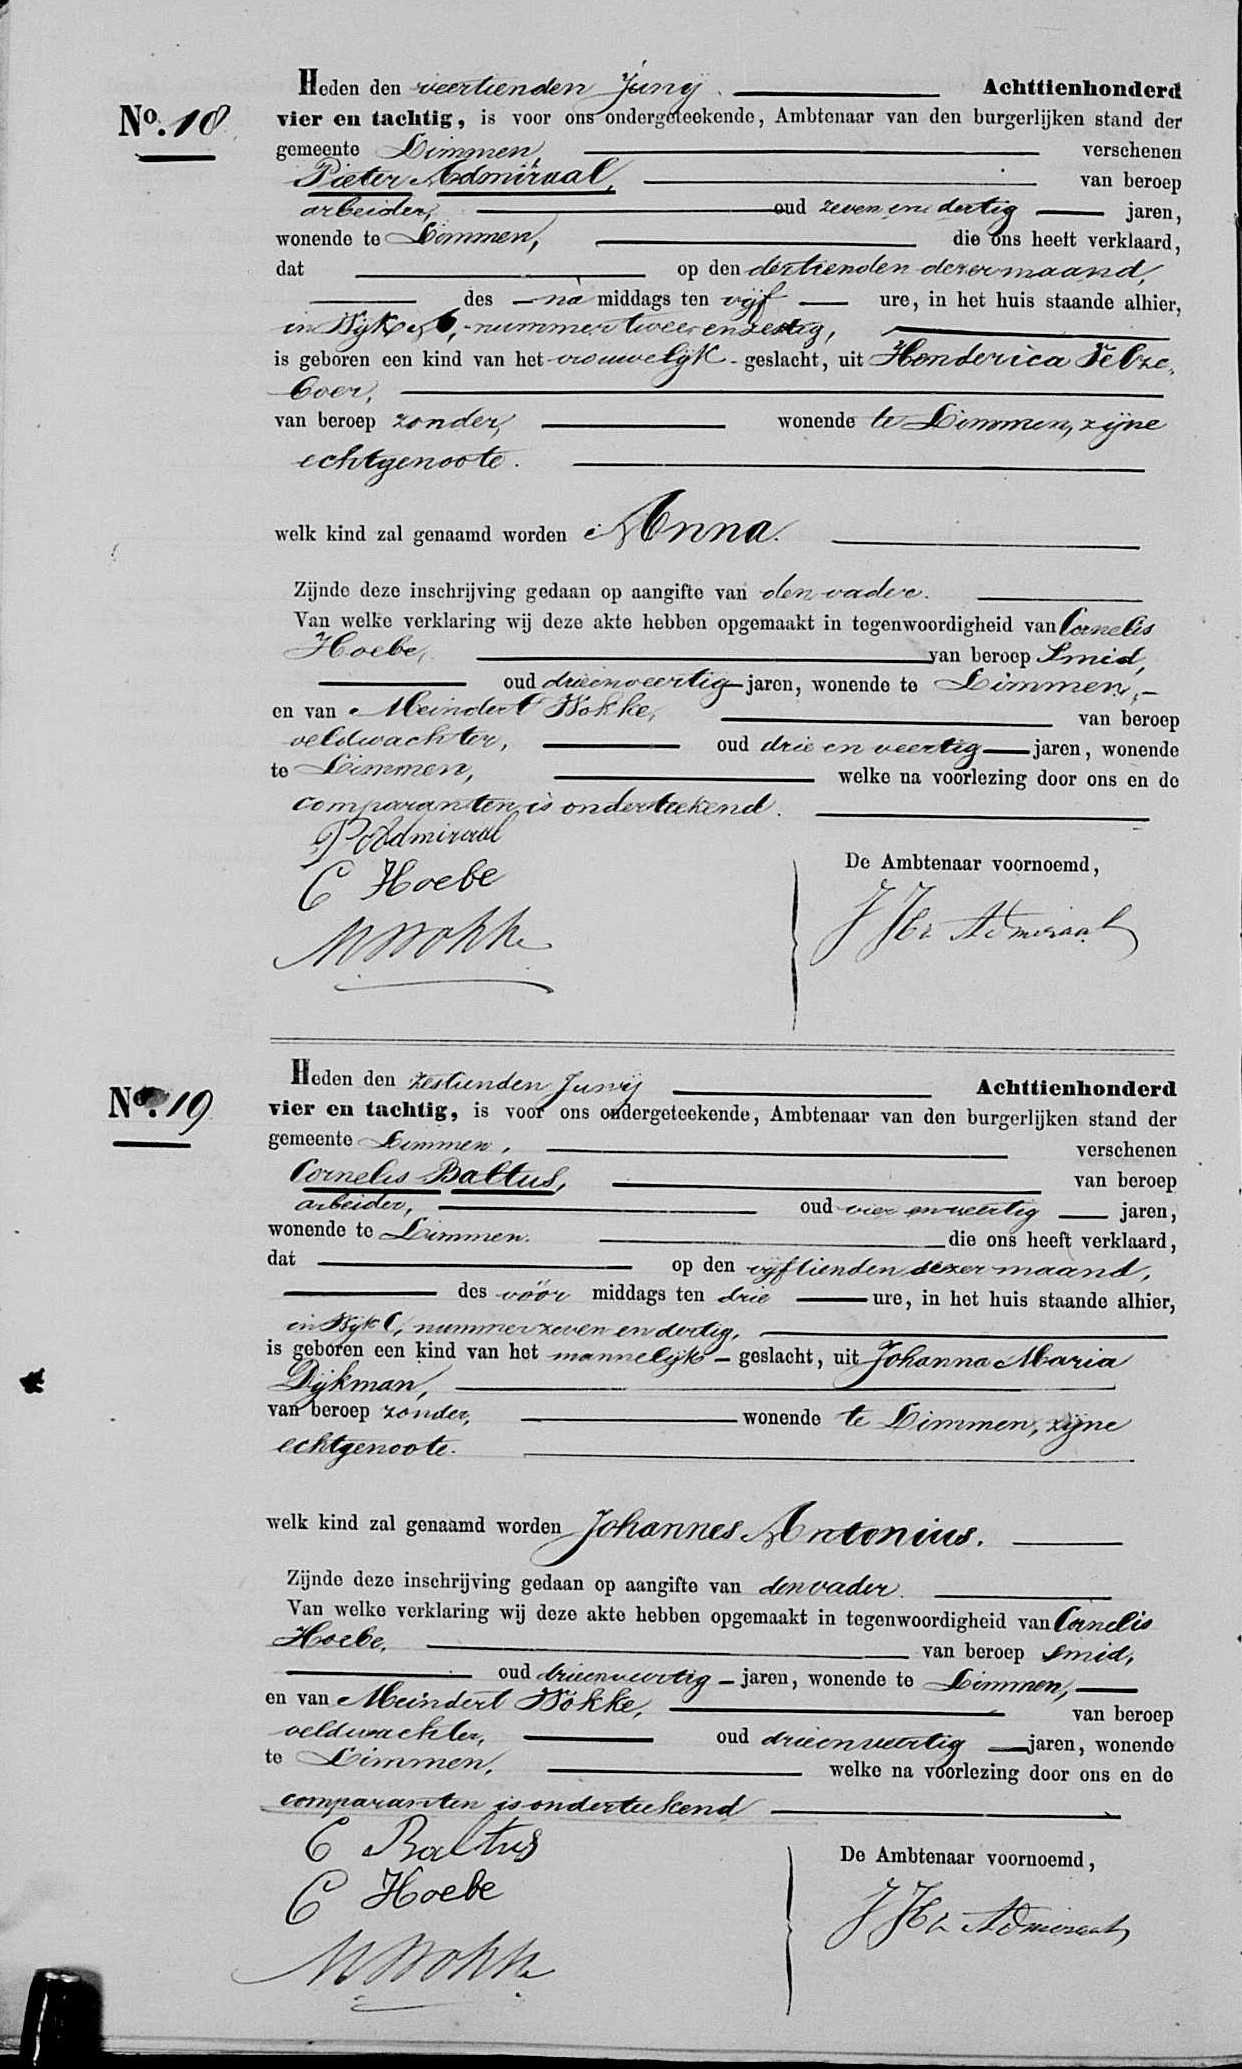 Heden den veertienden Junij. Achttienhonderd
No. 18
vier en tachtig, is voor ons ondergeteekende, Ambtenaar van den burgerlijken stand der
gemeente Limmen, verschenen
Pieter Admiraal, van beroep
arbeider, oud zeven en dertig jaren,
wonende te Limmen, die ons heeft verklaard,
dat op den dertienden dezer maand,
des na middags ten vijf ure, in het huis staande alhier,
in Wijk A, nummer twee en zestig,
is geboren een kind van het vrouwelijk geslacht, uit Henderica Velze-
boer,
van beroep zonder, wonende te Limmen, zijne
echtgenoote.
welk kind zal genaamd worden Anna.
Zijnde deze inschrijving gedaan op aangifte van den vader.
Van welke verklaring wij deze akte hebben opgemaakt in tegenwoordigheid van Cornelis
Hoebe, van beroep Smid,
oud drieenveertig jaren, wonende te Limmen,
en van Meindert Wokke, van beroep
veldwachter, oud drie en veertig jaren, wonende
te Limmen, welke na voorlezing door ons en de
comparanten is onderteekend.
P Admiraal
C Hoebe
De Ambtenaar voornoemd,
M Wokke
Admiraal
Heden den zestienden Junij Achttienhonderd
No. 19
vier en tachtig, is voor ons ondergeteekende, Ambtenaar van den burgerlijken stand der
gemeente Limmen, verschenen
Cornelis Baltus, van beroep
arbeider, oud vier en veertig jaren,
wonende te Limmen. die ons heeft verklaard,
dat op den vijftienden dezer maand,
des vóór middags ten drie ure, in het huis staande alhier,
in Wijk C, nummer zeven en dertig,
is geboren een kind van het mannelijk geslacht, uit Johanna Maria
Dijkman,
van beroep zonder, wonende te Limmen, zijne
echtgenoote.
welk kind zal genaamd worden Johannes Antonius.
Zijnde deze inschrijving gedaan op aangifte van den vader.
Van welke verklaring wij deze akte hebben opgemaakt in tegenwoordigheid van Cornelis
Hoebe, van beroep smid,
oud drieenveertig jaren, wonende te Limmen,
en van Meindert Wokke, van beroep
veldwachter, oud drieenveertig jaren, wonende
te Limmen, welke na voorlezing door ons en de
comparanten is onderteekend
C Baltus
De Ambtenaar voornoemd,
C Hoebe
Admiraal
M Wokke